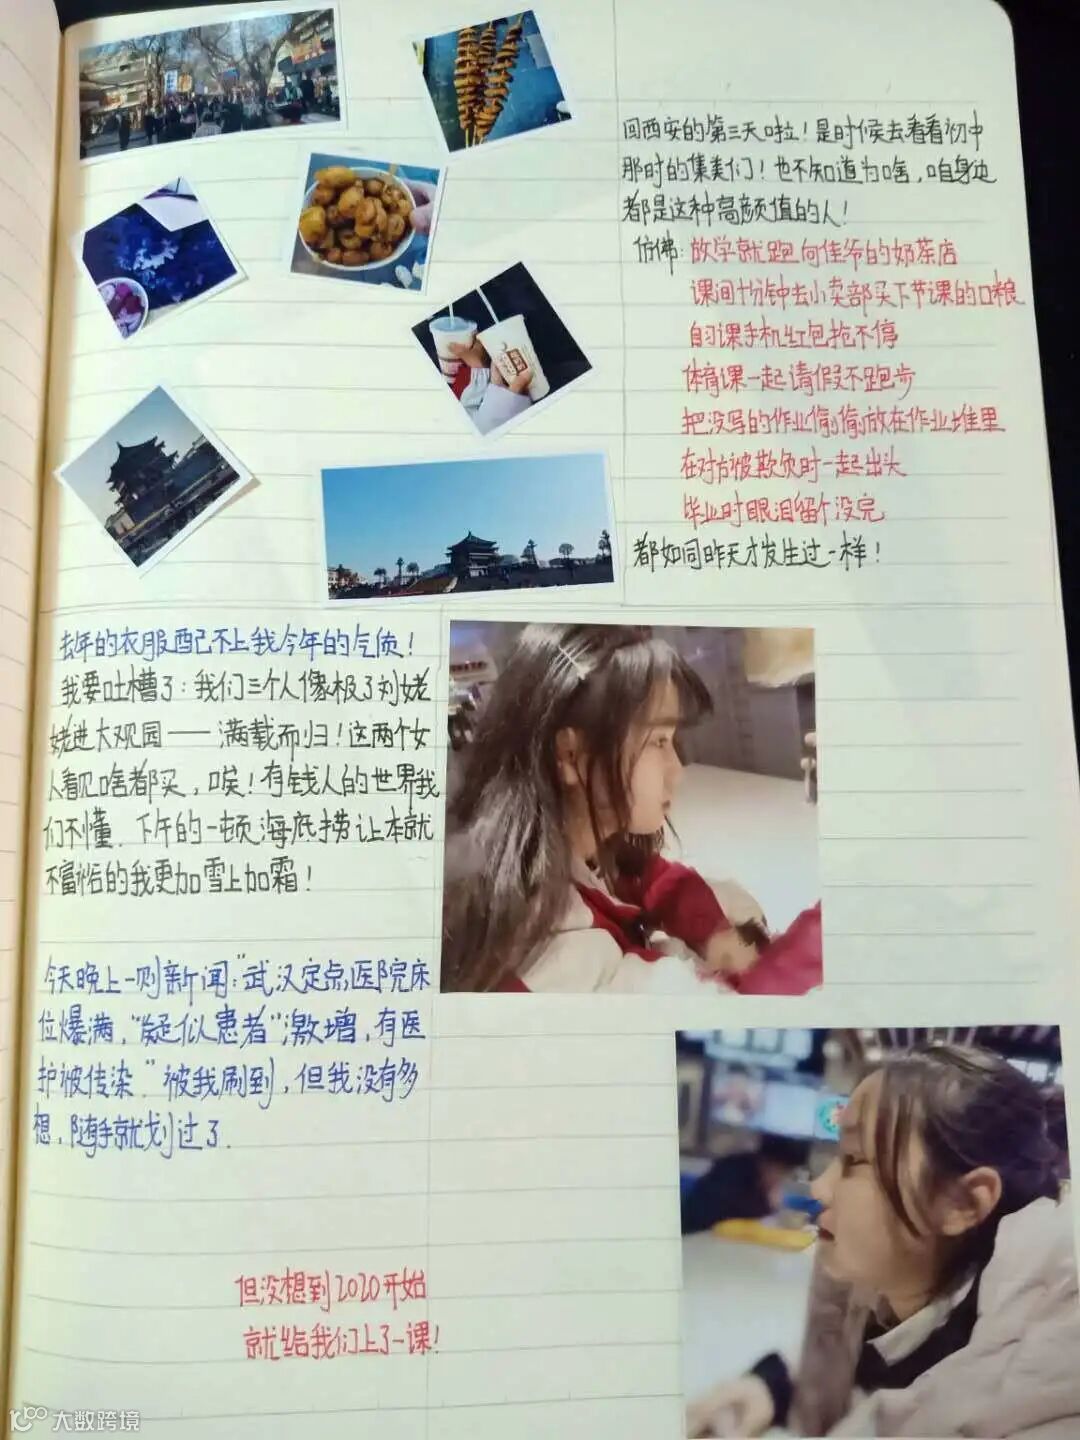 回西安的第三天啦！是时候去看看初中
那时的集美们！也不知道为啥，咱身边
都是这种高颜值的人！
仿佛：放学就跑向佳爷的奶茶店
课间十分钟去小卖部买下节课的口粮
自习课手机红包抢不停
体育课一起请假不跑步
把没写的作业偷偷放在作业堆里
在对方被欺负时一起出头
毕业时眼泪留个没完
都如同昨天才发生过一样！
去年的衣服配不上我今年的气质！
我要吐槽了：我们三个人像极了刘姥
姥进大观园——满载而归！这两个女
人看见啥都买，唉！有钱人的世界我
们不懂.下午的一顿海底捞让本就
不富裕的我更加雪上加霜！
今天晚上一则新闻："武汉定点医院床
位爆满，"疑似患者"激增，有医
护被传染."被我刷到，但我没有多
想，随手就划过了.
但没想到2020开始
就给我们上了一课！
大数跨境